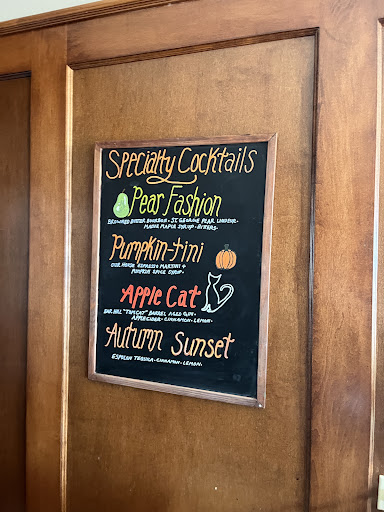 Specialty Cocktails
Pear Fashion
Browned Butter Bourbon • St. George Pear Liqueur •
Maine Maple Syrup • Bitters •
Pumpkin-tini
Our House Espresso Martini +
Pumpkin Spice Syrup •
Apple Cat
Bar Hill "Tomcat" Barrel Aged Gin •
Apple Cider • Cinnamon • Lemon •
Autumn Sunset
Espolon Tequila • Cinnamon • Lemon •